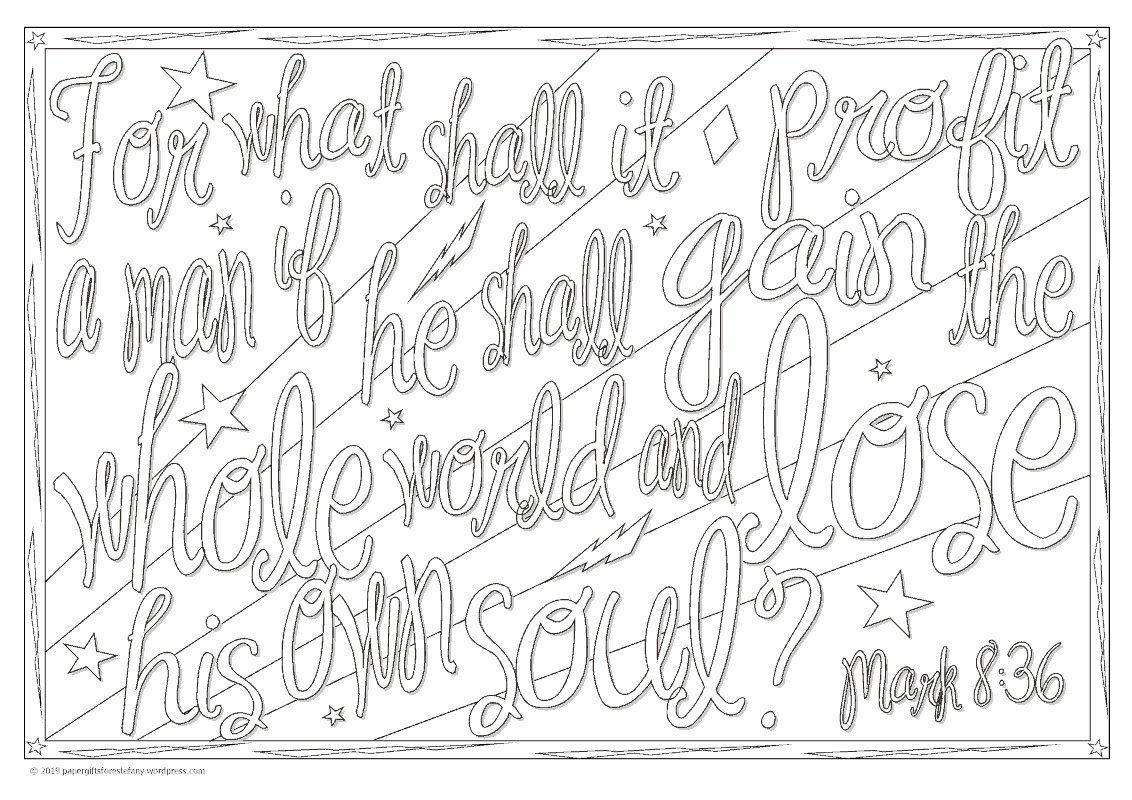 For what shall it profit
a man if he shall gain the
whole world and lose
his own soul?
Mark 8:36
© 2019 papergiftsforestefany.wordpress.com